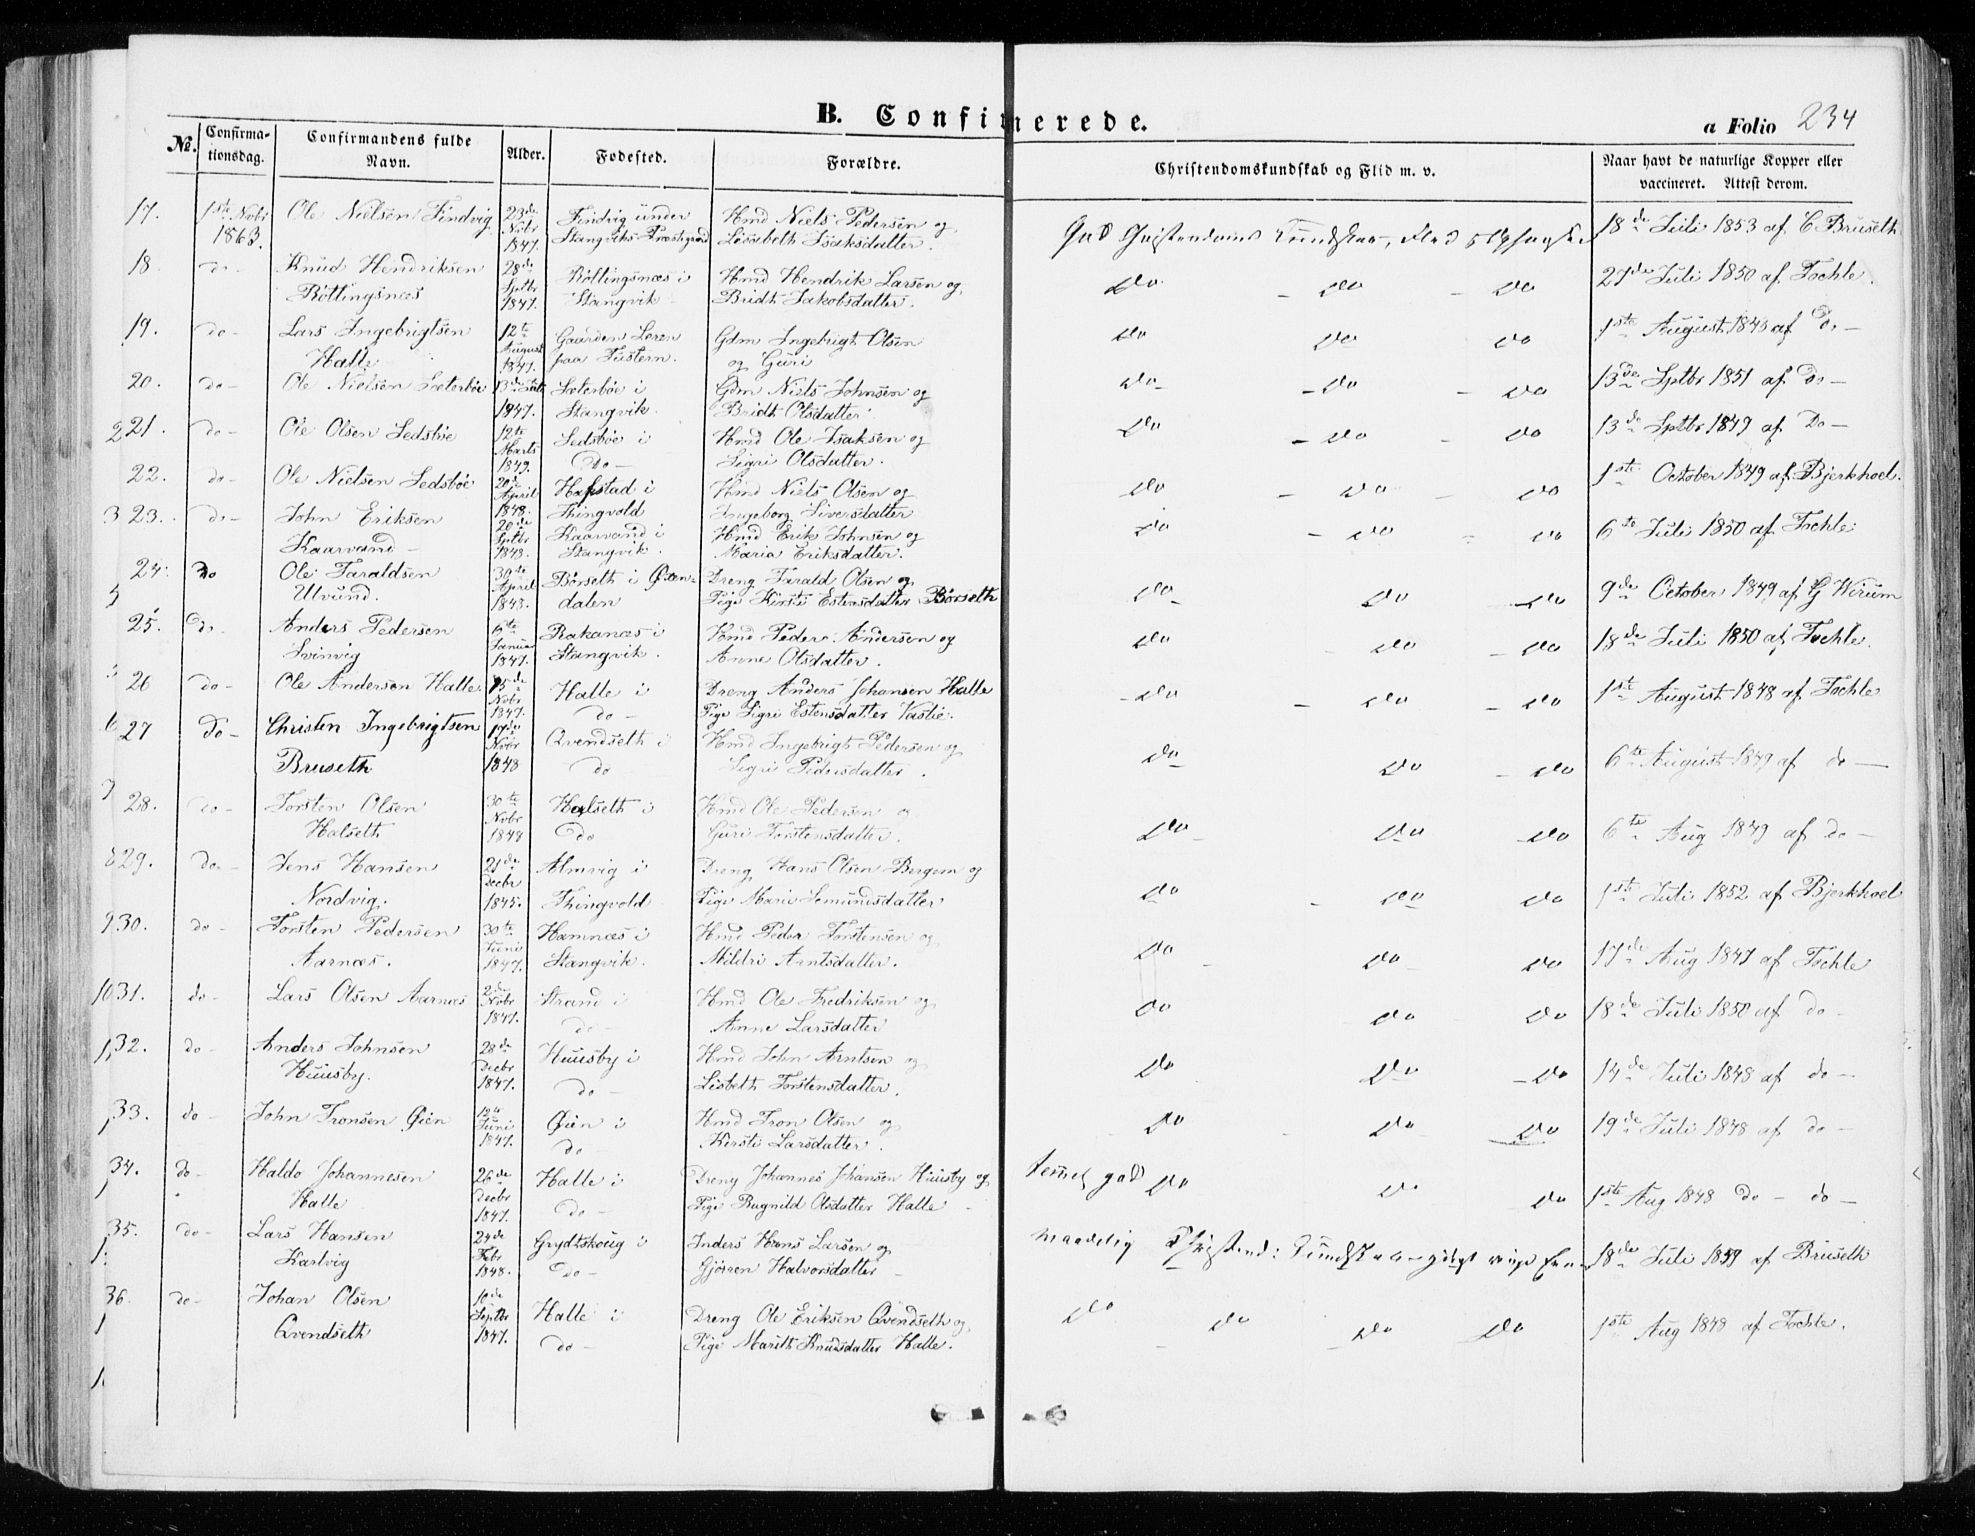 B. Confirmerede.
a Folio 234
No.
Confirmationsdag.
Confirmandens fulde Navn.
Alder.
Fødested.
Forældre.
Christendomskundskab og Flid m. v.
Naar havt de naturlige Kopper eller vaccineret. Attest derom.
17. 1ste Novbr 1863. Ole Nielsen Findvig 23de Novbr 1847. Findvig under Stangviks Præstegjæld Hmd Niels Pedersen og Lisabeth Isaksdatter. God Christendoms Kundskab, Flid 18de Juli 1853 af C Bruseth
18. do- Knud Hendriksen Røttingsnæs 28de Septbr 1847. Røttingsnæs i Stangvik Hmd Hendrik Larsen og Bridt Jakobsdatter. Do - Do - Do 27de Juli 1850 af Tochle.
19. do- Lars Ingebrigtsen Halle 12te August 1847. Gaarden Leren paa Tustern. Gdm Ingebrigt Olsen og Guri Do Do Do 1ste August af Do-
20. do- Ole Nielsen Sæterbøe 13de 1847. Sæterbøe i Stangvik. Gdm Niels Johnsen og Bridt Olsdatter. Do - Do - Do 13de Septbr 1851 af Do-
21. do- Ole Olsen Sedsbøe 12te Marts 1849. Sedsbøe i Do- Hmd Ole Isaksen og Sigri Olsdatter. Do - Do - Do 13de Septbr 1849 af Do-
22. do- Ole Nielsen Sedsbøe 20de April 1848. Hafstad i Thingvold Hmd Niels Olsen og Ingeborg Siversdatter Do - Do - Do 1ste October 1849 af Bjerkhoel.
23. do- John Eriksen Kaarvand- 20de Septbr 1843. Kaarvand i Stangvik. Hmd Erik Johnsen og Maria Eriksdatter. Do - Do - Do 6te Juli 1850 af Tochle
24. Do Ole Taraldsen Ulvund. 30te April 1843. Børseth i Øxendalen Dreng Tarald Olsen og Pige Kirsti Estensdatter Børseth Do Do Do 9de October 1849 af G Wirum
25. Do- Anders Pedersen Svinvig 6te Januar 1847. Rakanæs i Stangvik. Hmd Peder Andersen og Anne Olsdatter. Do - Do - Do 18de Juli 1850 af Tochle.
26 do- Ole Andersen Halle. 15de Novbr 1847. Halle i do- Dreng Anders Johansen Halle Pige Sigri Estensdatter Vaslie. Do - Do - Do 1ste August 1848 af Tochle
27 Do- Christen Ingebrigtsen Bruseth 17de Novbr 1848 Qvendseth i do Hmd Ingebrigt Pedersen og Sigri Pedersdatter. Do Do - Do 6te August 1849 af do-
28. do- Torsten Olsen Halseth 30te Novbr 1848 Halseth i Do Hmd Ole Pedersen og Guri Torstensdatter. Do Do - Do 6te Aug 1849 af do-
29. do- Jens Hansen Nordvig. 21de Decbr 1845. Almvig i Thingvold Dreng Hans Olsen Bergem og Pige Marie Semundsdatter Do - Do Do 1ste Juli 1852 af Bjerkhoel
30. do- Torsten Pedersen Aarnæs. 30te Juni 1847. Hamnæs i Stangvik. Hmd Peder Torstensen og Mildri Arntsdatter. Do - Do - Do 17de Aug 1847 af Tochle
31. do- Lars Olsen Aarnæs 2de Novbr 1847. Strand i do- Hmd Ole Fredriksen og Anne Larsdatter Do Do - Do 18de Juli 1850 af do-
32. do- Anders Johnsen Huusby. 28de Decbr 1847. Huusby i do- Hmd John Arntsen og Lisbeth Torstensdatter. Do Do - Do 14de Juli 1848 af do-
33. do- John Tronsen Øien Juni 1847. Øien i do- Hmd Tron Olsen og Kirsti Larsdatter. Do Do - Do 19de Juli 1848 af do-
34. do- Haldo Johannesen Halle 26de Decbr 1847. Halle i do- Dreng Johannes Johansen Huusby og Pige Ragnild Olsdatter Halle temel god Do Do Do 1ste Aug 1848 do- do-
35. do- Lars Hansen Karlvig 24de Febr 1848. Grydtskoug i do- Inders Hans Larsen og Gjøren Halvorsdatter maadelig Christend: Kundskab 18de Juli 1859 af Bruseth
36. do- Johan Olsen Qvendseth 10de Septbr 1847. Halle i do- Dreng Ole Eriksen Qvendseth og Pige Marith Knudsdatter Halle. Do Do - Do Do 1ste Aug 1848 af Tochle.